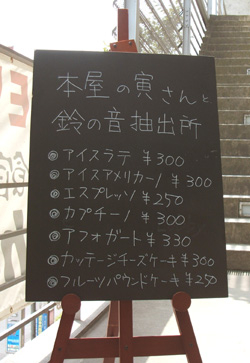 本屋の寅さんと
鈴の音抽出所
◎アイスラテ ¥300
◎アイスアメリカーノ ¥300
◎エスプレッソ ¥250
◎カプチーノ ¥300
◎アフォガート ¥330
◎カッテージチーズケーキ ¥300
◎フルーツパウンドケーキ ¥250